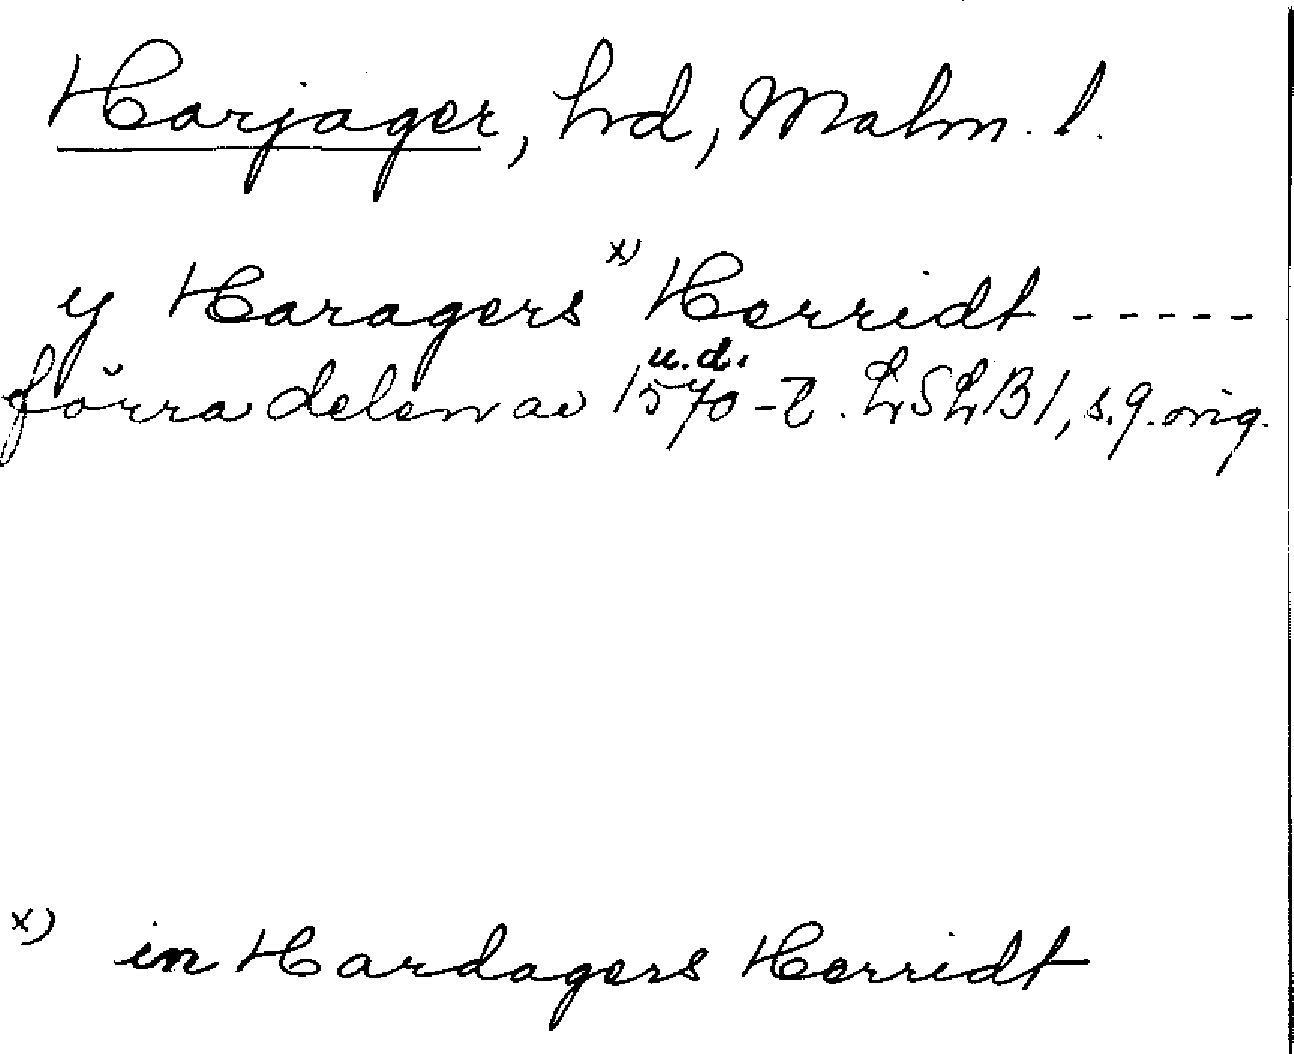 Harjager, hd, Malm. l.
y Haragers x) Herridt -----
u. d.
förra delen av 1570-t. LSLB1, s. 9. orig.
x) in Hardagers Herridt